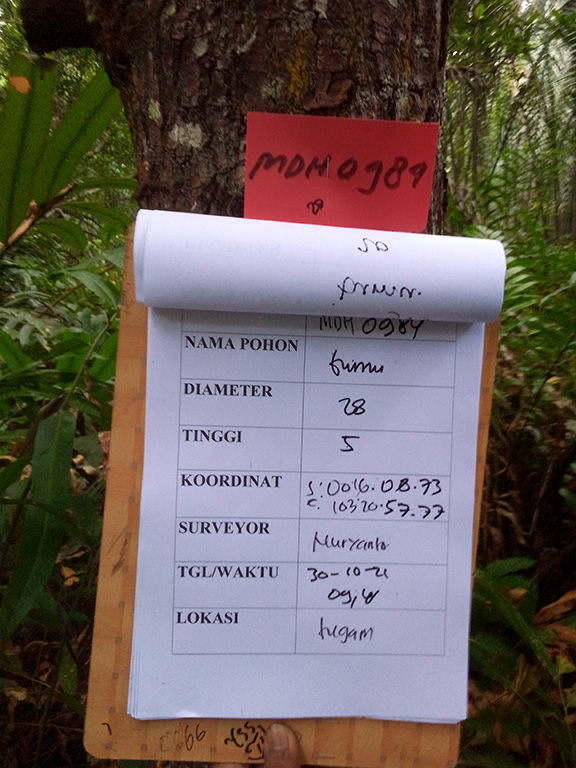 MDH 0984
28
MDH 0984
NAMA POHON
DIAMETER 28
TINGGI 5
KOORDINAT S: 0016.08.73
E: 10320.57.77
SURVEYOR Nuryanto
TGL/WAKTU 30-10-21
LOKASI tugam